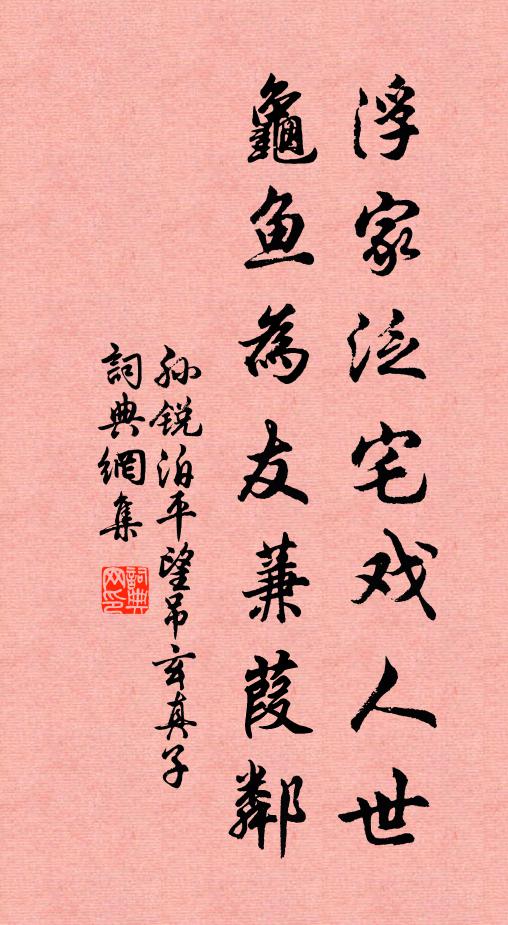 浮家泛宅戏人世
龜鱼為友蒹葭鄰
孙锐泊平望吊玄真子
詞典網集
詞典网印